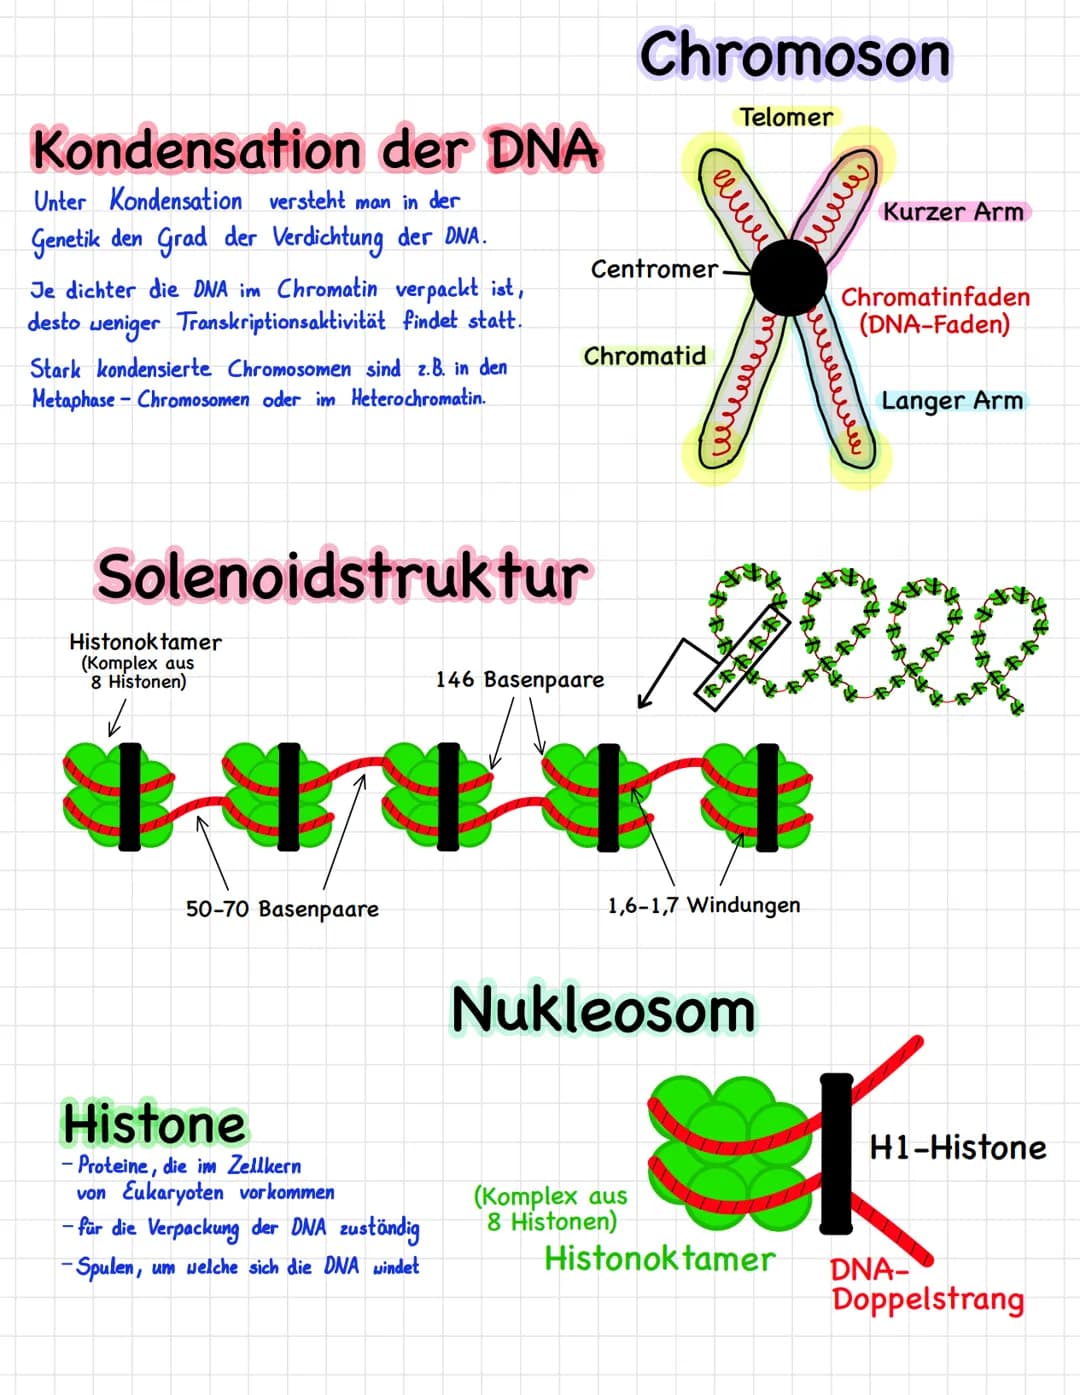 Chromoson
Telomer
Kurzer Arm
Centromer
Chromatinfaden
(DNA-Faden)
Chromatid
Langer Arm
Kondensation der DNA
Unter Kondensation versteht man in der
Genetik den Grad der Verdichtung der DNA.
Je dichter die DNA im Chromatin verpackt ist,
desto weniger Transkriptionsaktivität findet statt.
Stark kondensierte Chromosomen sind z.B. in den
Metaphase - Chromosomen oder im Heterochromatin.
Solenoidstruktur
Histonoktamer
(Komplex aus
8 Histonen)
146 Basenpaare
50-70 Basenpaare
1,6-1,7 Windungen
Nukleosom
H1-Histone
(Komplex aus
8 Histonen)
Histonoktamer
DNA-
Doppelstrang
Histone
- Proteine, die im Zellkern
von Eukaryoten vorkommen
- für die Verpackung der DNA zuständig
- Spulen, um welche sich die DNA windet